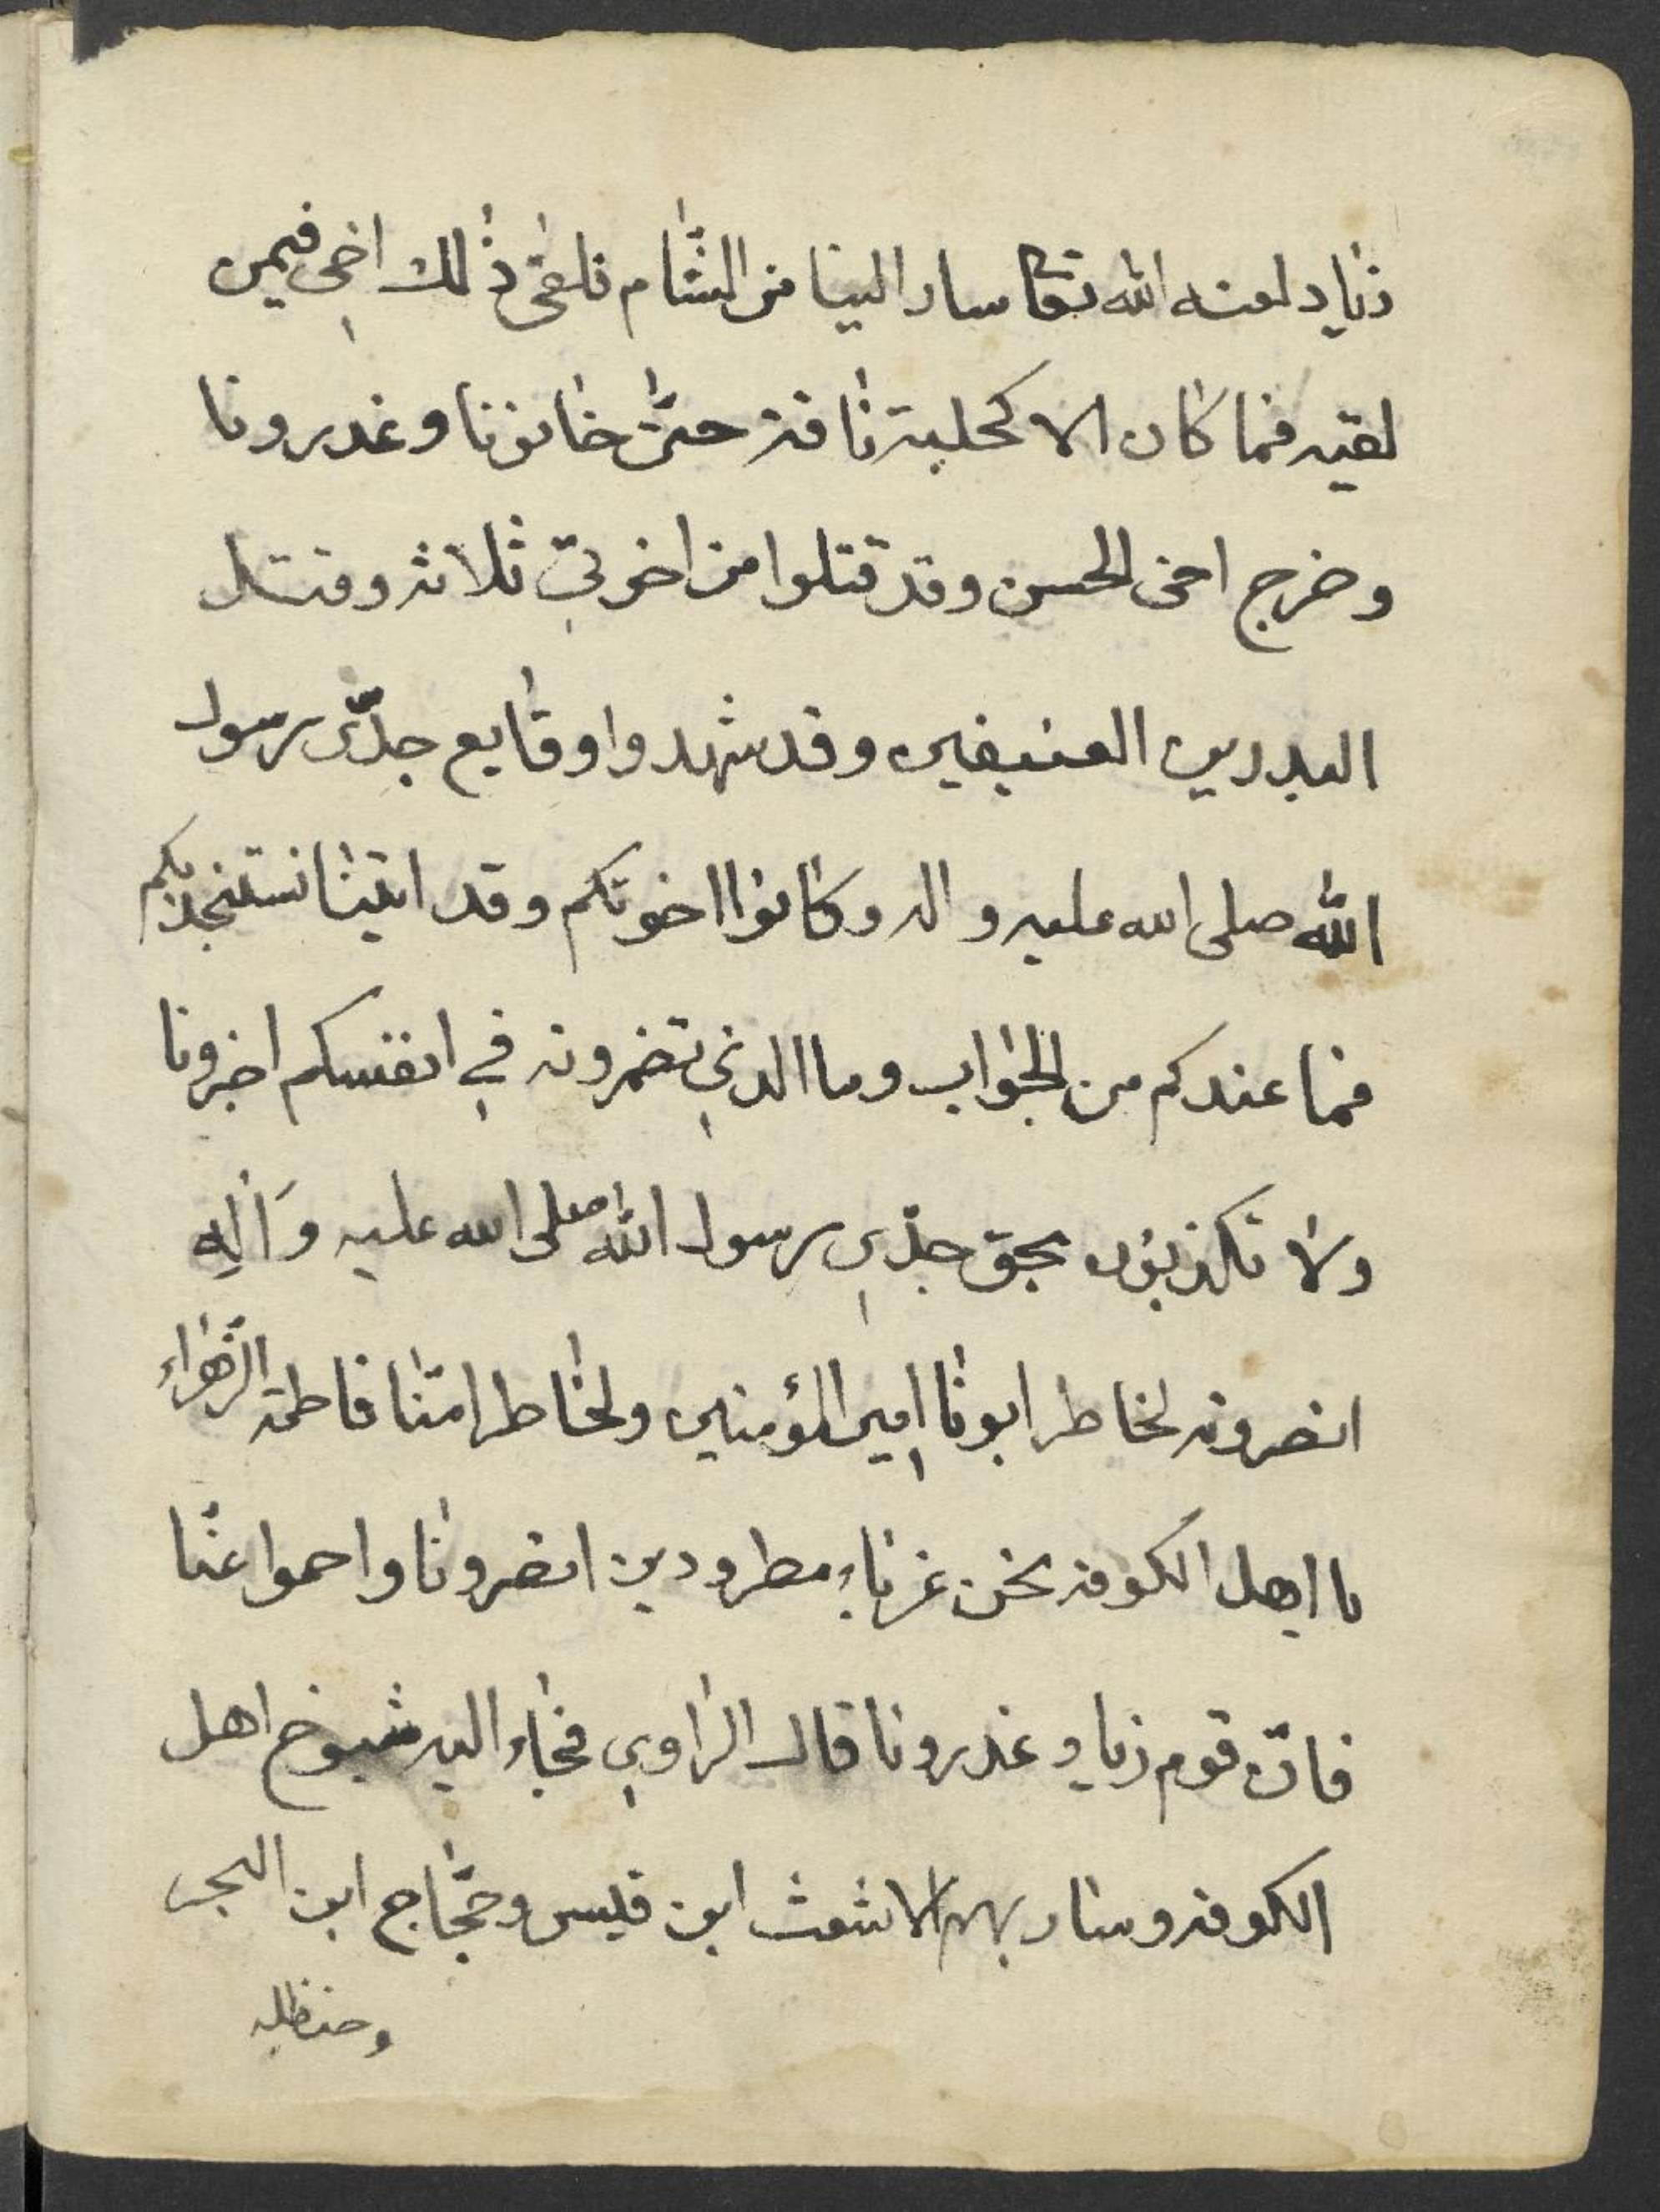 زياد لعنه الله تعا سار الينا من الشّام فلقى ذلك اخى فيمن
لقيه فما كان الا كحلبة ناقة حتّى خانونا وغدرونا
وخرج اخى الحسن وقد قتلوا من اخوتي ثلاثه وقتل
البدرين العنيفين وقد شهدوا وقايع جدّى رسول
الله صلى الله عليه واله وكانوا اخوتكم وقد اتينا نستنجد بكم
فما عندكم من الجواب وما الذي تضمرونه في انفسكم اخبرونا
ولا تكذبون بحق جدّي رسول الله صلى الله عليه وَآلِه
انصرونه لخاطر ابونا امير المؤمنين ولخاطر امّنا فاطمة الزّهراء
يا اهل الكوفه نحن غرباء مطرودين انصرونا واحموا عنّا
فانّ قوم زياد غدرونا قال الرّاوي فجاء اليه شيوخ اهل
الكوفه وسار بهم الاشعث ابن قيس وحجّاج ابن البجر
وحنظله